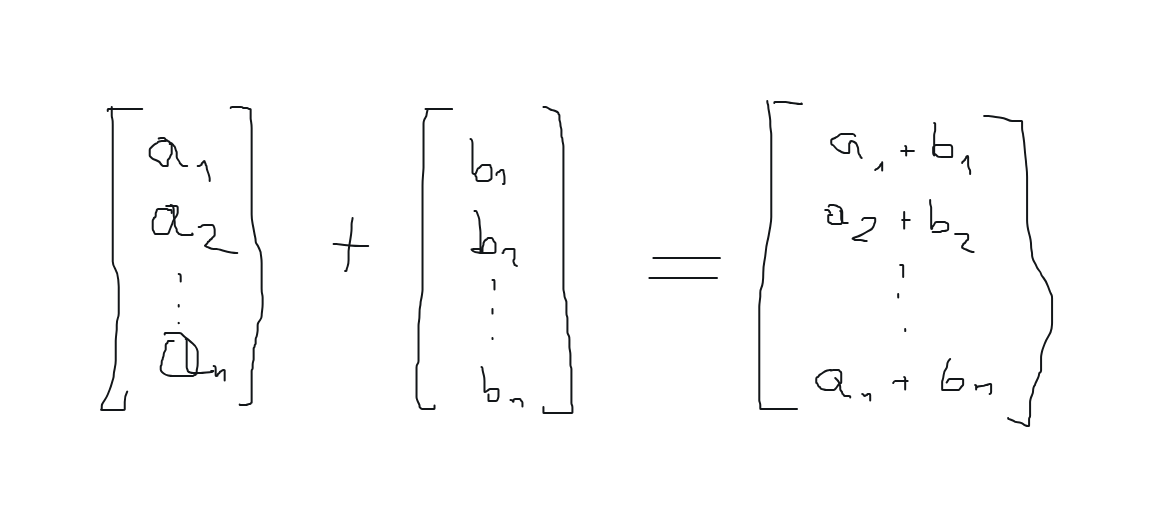 [a₁ a₂ ⋮ aₙ] + [b₁ b₂ ⋮ bₙ] = [a₁ + b₁ a₂ + b₂ ⋮ aₙ + bₙ]